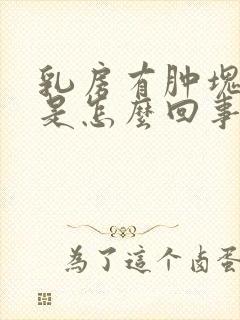 乳房有肿塊
是怎麽回事
為了這个卤蛋